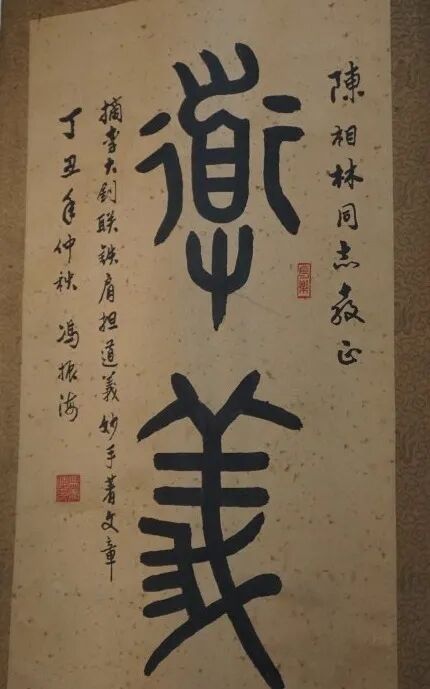 陳相林同志教正
道義
摘李大釗联鉄肩担道義妙手著文章
丁丑年仲秋 馮振海